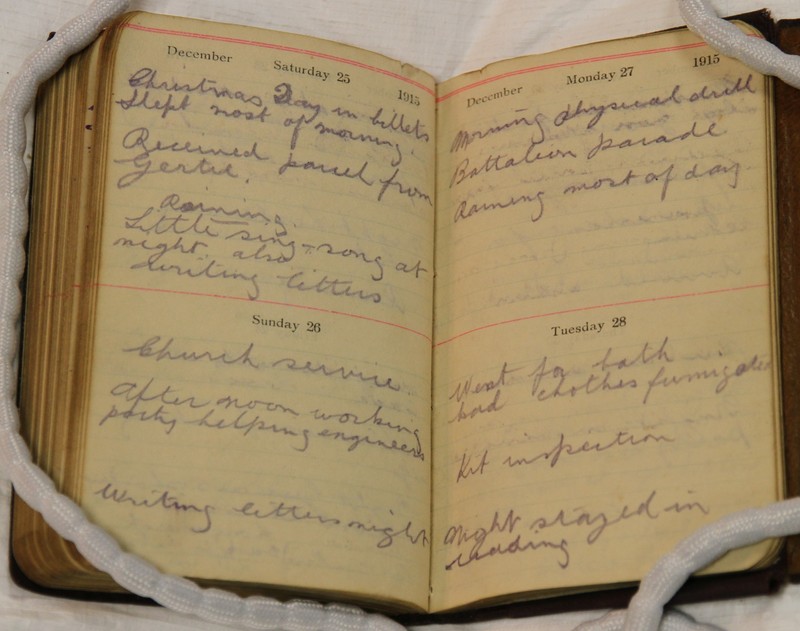 December Saturday 25 1915
Christmas Day in billets
Slept most of morning.
Received parcel from
Gertie.
Raining.
Little sing-song at
night also
writing letters
Sunday 26
Church service.
After noon working
party helping engineers
Writing letters night
December Monday 27 1915
Morning physical drill
Battalion parade
Raining most of day
Tuesday 28
West for bath
had clothes fumigated
Kit inspection
Night stayed in
reading